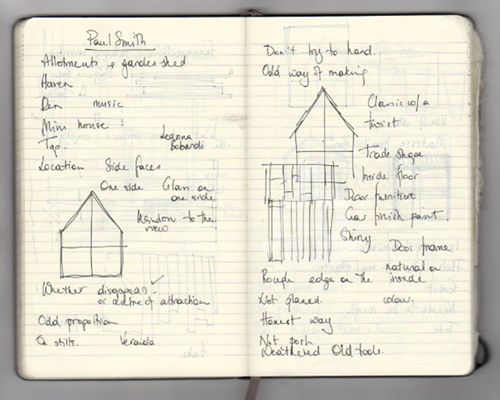 Paul Smith
Allotments + garden shed
Haven
Den music
Mini house
Location Side faces
One side Glass on
one side
Window to the
view
Whether disappears
or centre of attraction
Odd proposition
On stilts.
Don't try to hard.
Odd way of making
Classic w/a
twist
Trade Shape
Inside floor
Door furniture
Car finish paint
Shiny Door frame
natural on
Rough edge on the inside
Not planed. colour.
Honest way
Not posh
Weathered Old tools.